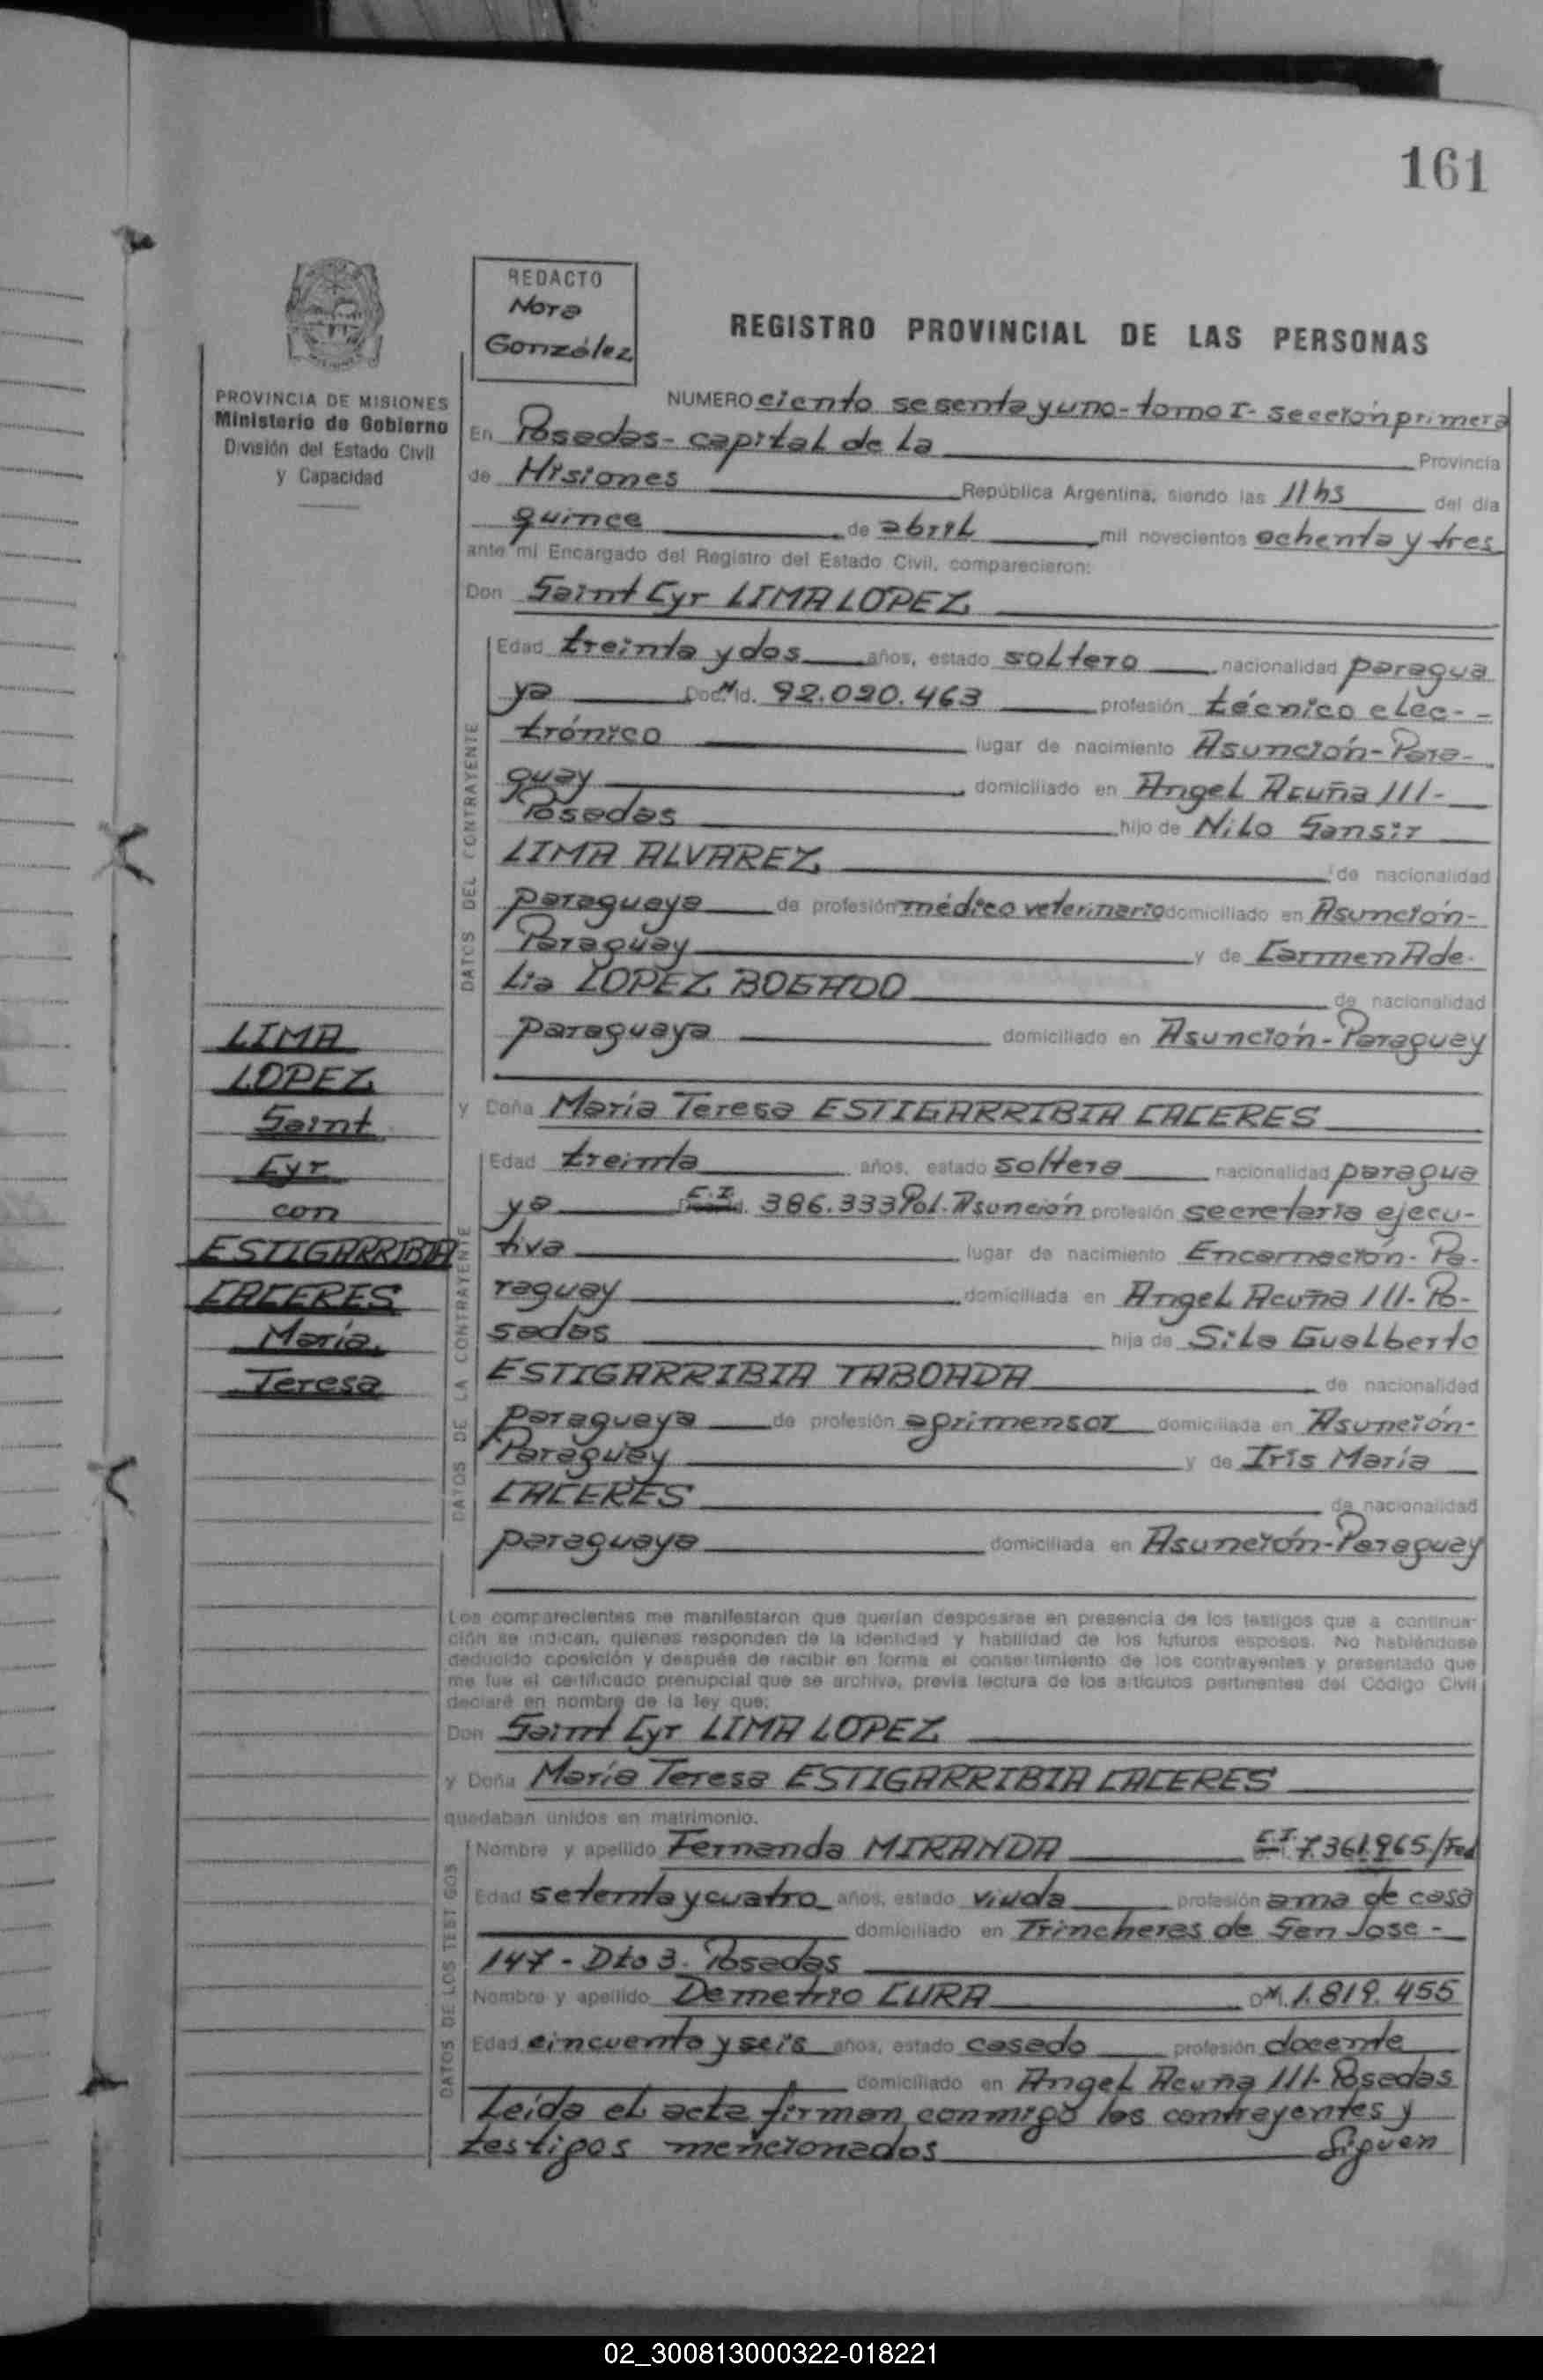 161
REDACTO
Nora
González
REGISTRO PROVINCIAL DE LAS PERSONAS
PROVINCIA DE MISIONES
Ministerio de Gobierno
División del Estado Civil
y Capacidad
NUMERO ciento sesenta y uno - tomo I - sección primera
En Posadas - capital de la Provincia
de Misiones República Argentina, siendo las 11 hs del día
quince de abril mil novecientos ochenta y tres
ante mi Encargado del Registro del Estado Civil, comparecieron:
Don Saint Cyr LIMA LOPEZ
DATOS DEL CONTRAYENTE
Edad treinta y dos años, estado soltero nacionalidad paragua
ya Doc. Id. 92.020.463 profesión técnico elec-
trónico lugar de nacimiento Asunción - Para-
guay domiciliado en Angel Acuña 111-
Posadas hijo de Nilo Sansir
LIMA ALVAREZ de nacionalidad
paraguaya de profesión médico veterinario domiciliado en Asunción-
Paraguay y de Carmen Ade-
lia LOPEZ BOGADO de nacionalidad
paraguaya domiciliado en Asunción - Paraguay
LIMA
LOPEZ
Saint
Cyr
con
ESTIGARRIBIA
CACERES
María
Teresa
y Doña María Teresa ESTIGARRIBIA CACERES
DATOS DE LA CONTRAYENTE
Edad treinta años, estado soltera nacionalidad paragua
ya C.I. 386.333 Pol. Asunción profesión secretaria ejecu-
tiva lugar de nacimiento Encarnación - Pa-
raguay domiciliada en Angel Acuña 111 - Po-
sadas hija de Sila Gualberto
ESTIGARRIBIA TABOADA de nacionalidad
paraguaya de profesión agrimensor domiciliada en Asunción-
Paraguay y de Iris María
CACERES de nacionalidad
paraguaya domiciliada en Asunción - Paraguay
Los comparecientes me manifestaron que querían desposarse en presencia de los testigos que a continua-
ción se indican, quienes responden de la identidad y habilidad de los futuros esposos. No habiéndose
deducido oposición y después de recibir en forma el consentimiento de los contrayentes y presentado que
me fue el certificado prenupcial que se archiva, previa lectura de los artículos pertinentes del Código Civil
declaré en nombre de la ley que:
Don Saint Cyr LIMA LOPEZ
y Doña María Teresa ESTIGARRIBIA CACERES
quedaban unidos en matrimonio.
DATOS DE LOS TESTIGOS
Nombre y apellido Fernanda MIRANDA C.I. 7.361.965/Fed
Edad setenta y cuatro años, estado viuda profesión ama de casa
domiciliado en Trincheras de San Jose -
147 - Dto 3. Posadas
Nombre y apellido Demetrio CURA D.M. 1.819.455
Edad cincuenta y seis años, estado casado profesión docente
domiciliado en Angel Acuña 111 - Posadas
Leida el acta firman conmigo los contrayentes y
testigos mencionados Siguen
02_300813000322-018221